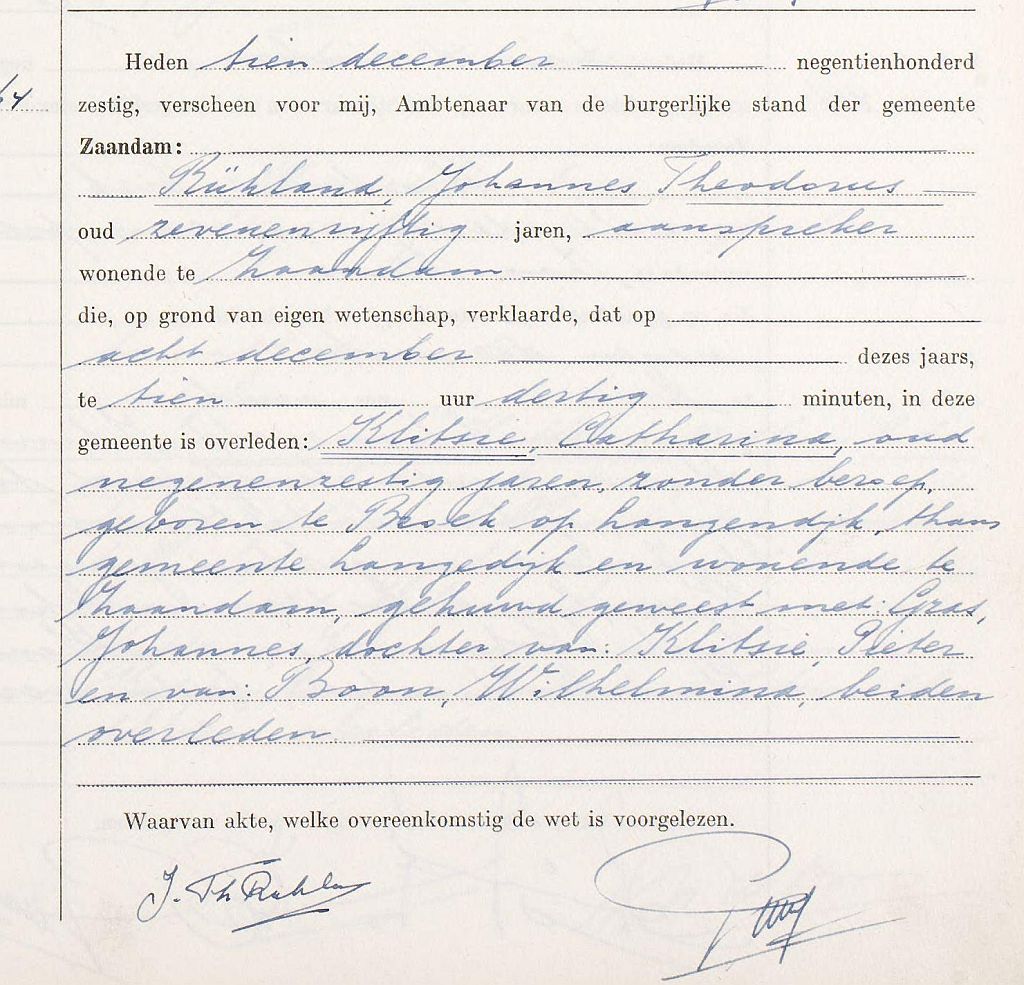 Heden tien december negentienhonderd
zestig, verscheen voor mij, Ambtenaar van de burgerlijke stand der gemeente
Zaandam:
Rühland, Johannes Theodorus
oud zevenenvijftig jaren, aanspreker
wonende te Zaandam
die, op grond van eigen wetenschap, verklaarde, dat op
acht december dezes jaars,
te tien uur dertig minuten, in deze
gemeente is overleden: Klitsie, Catharina, oud
negenenzestig jaren, zonder beroep,
geboren te Broek op Langendijk, thans
gemeente Langedijk en wonende te
Zaandam, gehuwd geweest met: Gras,
Johannes, dochter van: Klitsie, Pieter
en van: Boon, Wilhelmina, beiden
overleden.
Waarvan akte, welke overeenkomstig de wet is voorgelezen.
J. Th